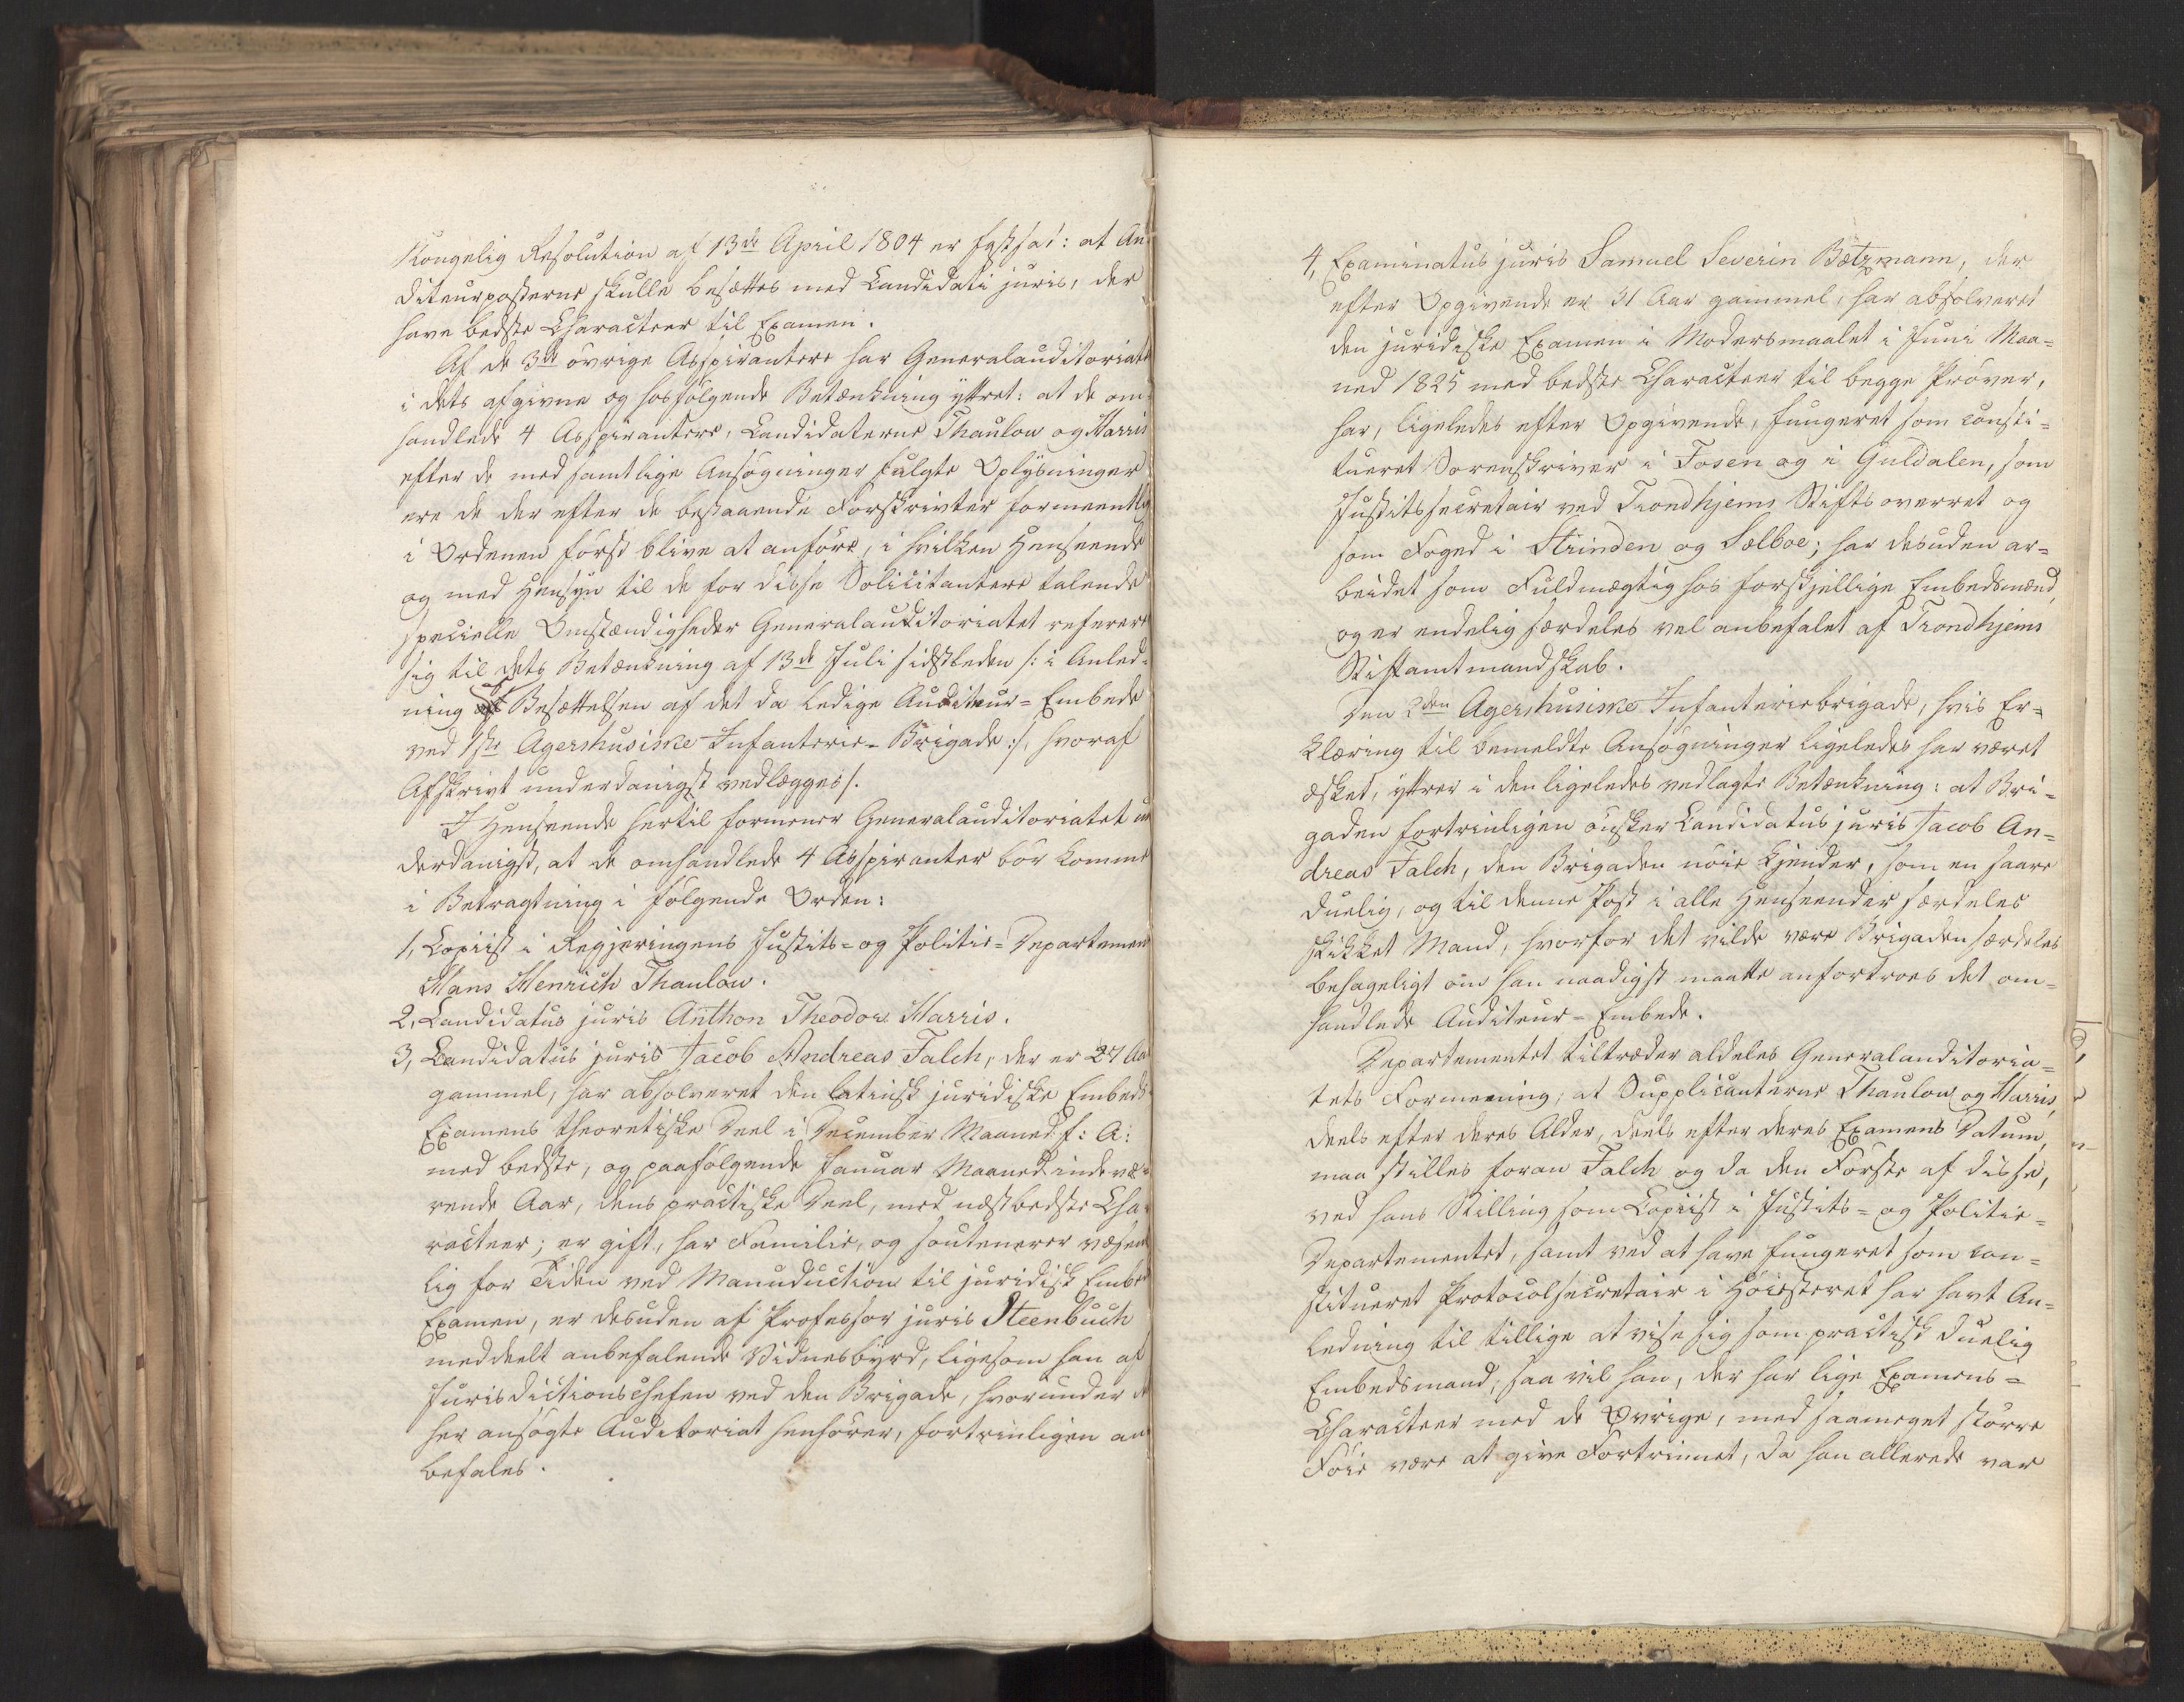 Kongelig Resolution af 13de April 1804 er fastsat: at Au
diteurposterne skulle besættes med Candidati juris, der
have bedste Characteer til Examen.
Af de 3de øvrige Asspirantere har Generalauditoriate
i dets afgivne og hosfølgende Betænkning yttret: at de om-
handlede 4 Asspirantere, Candidaterne Thaulow og Harris
efter de med samtlige Ansøgninger fulgte Oplysninger
ere de der efter de bestaaende Forskrivter formeentlig
i Ordenen først blive at anføre, i hvilken Henseende
og med Hensyn til de for disse Solicitantere talende
specielle Omstændigheder Generalauditoriatet referere
sig til dets Betænkning af 13de Juli sidstleden /: i Anled-
ning af Besættelsen af det da ledige Auditeur-Embede
ved 1ste Agershusiske Infanterie-Brigade :/, hvoraf
Afskrivt underdanigst vedlægges /.
I Henseende hertil formener Generalauditoriatet un
derdanigst, at de omhandlede 4 Asspiranter bør komme
i Betragtning i følgende Orden:
1, Copiist i Regjeringens Justits- og Politie-Departemen
Hans Henrich Thaulow.
2, Candidatus juris Anthon Theodor Harris.
3, Candidatus juris Jacob Andreas Falch, der er 27 Aar
gammel, har absolveret den latinsk juridiske Embeds-
Examens theoretiske Deel i December Maaned f: A:
med bedste, og paafølgende Januar Maaned indevæ-
rende Aar, dens practiske Deel, med næstbedste Cha-
racteer; er gift, har Familie, og soutenerer væsent
lig for Tiden ved Manuduction til juridisk Embe
Examen, er desuden af Professor juris Steenbuch
meddeelt anbefalende Vidnesbyrd, ligesom han af
Jurisdictionschefen ved den Brigade, hvorunder de
her ansøgte Auditoriat henhører, fortrinligen an
befales.
4, Examinatus juris Samuel Severin Bætzmann, der
efter Opgivende er 31 Aar gammel, har absolveret
den juridiske Examen i Modersmaalet i Juni Maa-
ned 1825 med bedste Characteer til begge Prøver,
har, ligeledes efter Opgivende, fungeret som consti-
tueret Sorenskriver i Fosen og i Guldalen, som
Justitssecretair ved Trondhjems Stiftsoverret og
som Foged i Strinden og Sælboe; har desuden ar-
beidet som Fuldmægtig hos forskjellige Embedsmænd,
og er endelig særdeles vel anbefalet af Trondhjems
Stiftamtmandskab.
Den 2den Agershusiske Infanteriebrigade, hvis Er-
klæring til bemeldte Ansøgninger ligeledes har været
æsket, yttrer i den ligeledes vedlagte Betænkning: at Bri-
gaden fortrinligen ønsker Candidatus juris Jacob An-
dreas Falch, den Brigaden nøie kjender, som en saare
duelig, og til denne Post i alle Henseender særdeles
skikket Mand, hvorfor det vilde være Brigaden særdeles
behageligt om han naadigst maatte anfortroes det om-
handlede Auditeur-Embede.
Departementet tiltræder aldeles Generalauditoria-
tets Formening, at Supplicanterne Thaulow og Harris,
deels efter deres Alder, deels efter deres Examens Datum,
maa stilles foran Falch og da den Første af disse,
ved hans Stilling som Copiist i Justits- og Politie-
Departementet, samt ved at have fungeret som con-
stitueret Protocolsecretair i Høiesteret har havt An-
ledning til tillige at vise sig som practisk duelig
Embedsmand; saa vil han, der har lige Examens-
Characteer med de Øvrige, med saameget større
Føie være at give Fortrinnet, da han allerede var